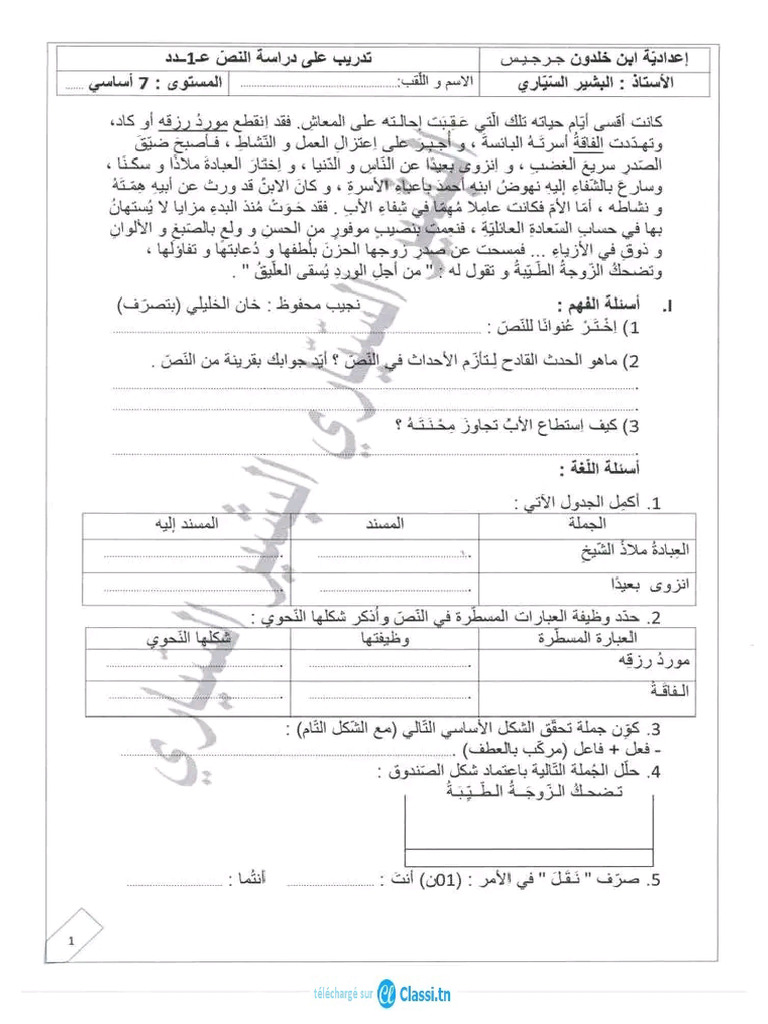 إعداديّة ابن خلدون جرجيس
تدريب على دراسة النصّ عـ1ـدد
الأستاذ : البشير السيّاري
الاسم و اللّقب:
المستوى : 7 أساسي ......
كانت أقسى أيّام حياته تلك الّتي عَـقِـبَت إحالـته على المعاشِ. فقد اِنقطع موردُ رزقِه أو كاد،
وتهدّدت الفاقةُ أسرتَـهُ البائسةَ ، و أُجـبِـرَ على اِعتزالِ العمل و النّشاطِ ، فـأصبحَ ضيّقَ
الصّدرِ سريعَ الغضبِ ، و اِنزوى بعيدًا عن النّاسِ و الدّنيا ، و اِختارَ العبادةَ ملاذًا و سكـنًـا ،
وسارعَ بالشّفاءِ إليه نهوضُ ابنِه أحمدَ بأعباءِ الأسرةِ ، و كان الابنُ قد ورث عن أبيهِ هِمّـتَهُ
و نشاطه ، أمّـا الأمّ فكانت عاملا مُهِمًّا في شفاءِ الأبِ . فقد حَـوَتْ مُنذ البدءِ مزايا لا يُستهانُ
بها في حساب السّعادةِ العائليّةِ ، فنعِمت بنصيبٍ موفورٍ من الحسنِ و ولعٍ بالصّبغِ و الألوانِ
و ذوقٍ في الأزياءِ ... فمسحت عن صدرِ زوجها الحزنَ بلُطفها و دُعابتها و تفاؤلها ،
وتضحكُ الزّوجةُ الطّـيّبةُ و تقول له : " من أجلِ الوردِ يُسقى العلّيقُ " .
I. أسئلة الفهم :
نجيب محفوظ : خان الخليلي (بتصرّف)
1) اِخْـتَـرْ عُنوانًا للنّصّ :
2) ماهو الحدث القادح لِـتأزّم الأحداث في النّصّ ؟ أيّد جوابك بقرينة من النّصّ .
3) كيف اِستطاع الأبُ تجاوزَ مِحْـنَـتَـهُ ؟
أسئلة اللّغة :
1. أكمِل الجدول الآتي :
الجملة
المسند
المسند إليه
العِبادةُ ملاذُ الشّيخِ
انزوى بعيدًا
2. حدّد وظيفة العبارات المسطّرة في النّصّ وأذكر شكلها النّحوي :
العبارة المسطّرة
وظيفتها
شكلها النّحوي
موردُ رزقِه
الـفـاقـةُ
3. كوّن جملة تحقّق الشكل الأساسي التّالي (مع الشّكل التّام) :
- فعل + فاعل (مركّب بالعطف) .
4. حلّل الجُملة التّالية باعتماد شكل الصّندوق :
تـضـحـكُ الـزّوجَــةُ الـطّـيّـبَـةُ
5. صرّف " نَـقَـلَ " في الأمر : (01ن) أنتَ :
أنتُما :
1
البشير السيّاري
البشير السيّاري
téléchargé sur
Classi.tn